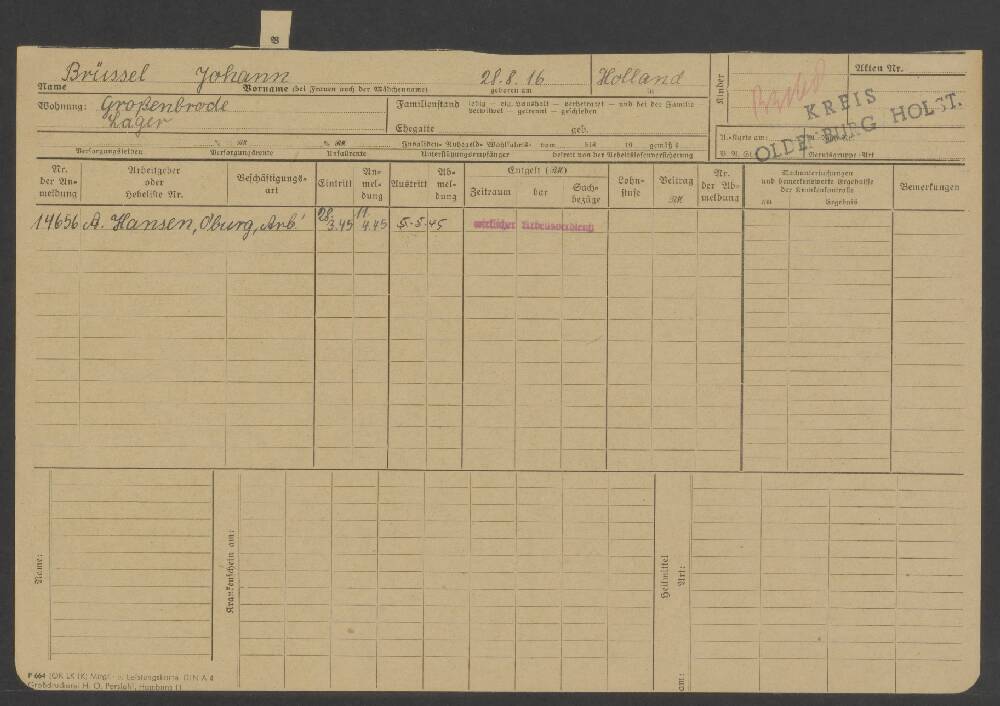 B
Brüssel Johann 28.8.16 Holland
Name Vorname (bei Frauen auch der Mädchenname) geboren am in
Kinder
Akten Nr.
KREIS
OLDENBURG HOLST.
Wohnung: Großenbrode
Lager
Familienstand ledig – eig. Haushalt – verheiratet – und bei der Familie
verwitwet – getrennt – geschieden
Ehegatte geb.
A.-Karte am:
Berufsgruppe Art
Versorgungsleiden Versorgungsrente Unfallrente
% RM % RM
Invaliden- Ruhegeld- Wohlfahrts- vom bis 19 gemäß §
Unterstützungsempfänger befreit von der Arbeitslosenversicherung
Nr. der Anmeldung
Arbeitgeber oder Hebeliste Nr.
Beschäftigungsart
Eintritt
Anmeldung
Austritt
Abmeldung
Entgelt (RM)
Zeitraum bar Sachbezüge
Lohnstufe
Beitrag RM
Nr. der Abmeldung
und bemerkenswerte Ergebnisse
der Krankenkontrolle
am Ergebnis
Bemerkungen
14656 A. Hansen, O'burg, Arb. 28. 3.45 11. 4.45 5.5.45 wirklicher Arbeitsverdienst
Name:
Krankenschein am:
Heilmittel
Art:
am:
F 664 (OK LK IK) Mitgl.- u. Leistungskarte DIN A 4
Großdruckerei H. O. Persiehl, Hamburg 11